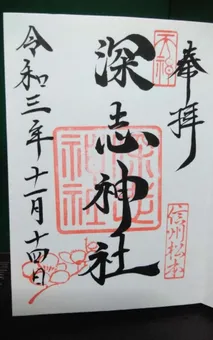 奉拝
天神
深志神社
深志神社
信州松本
令和三年十一月十四日